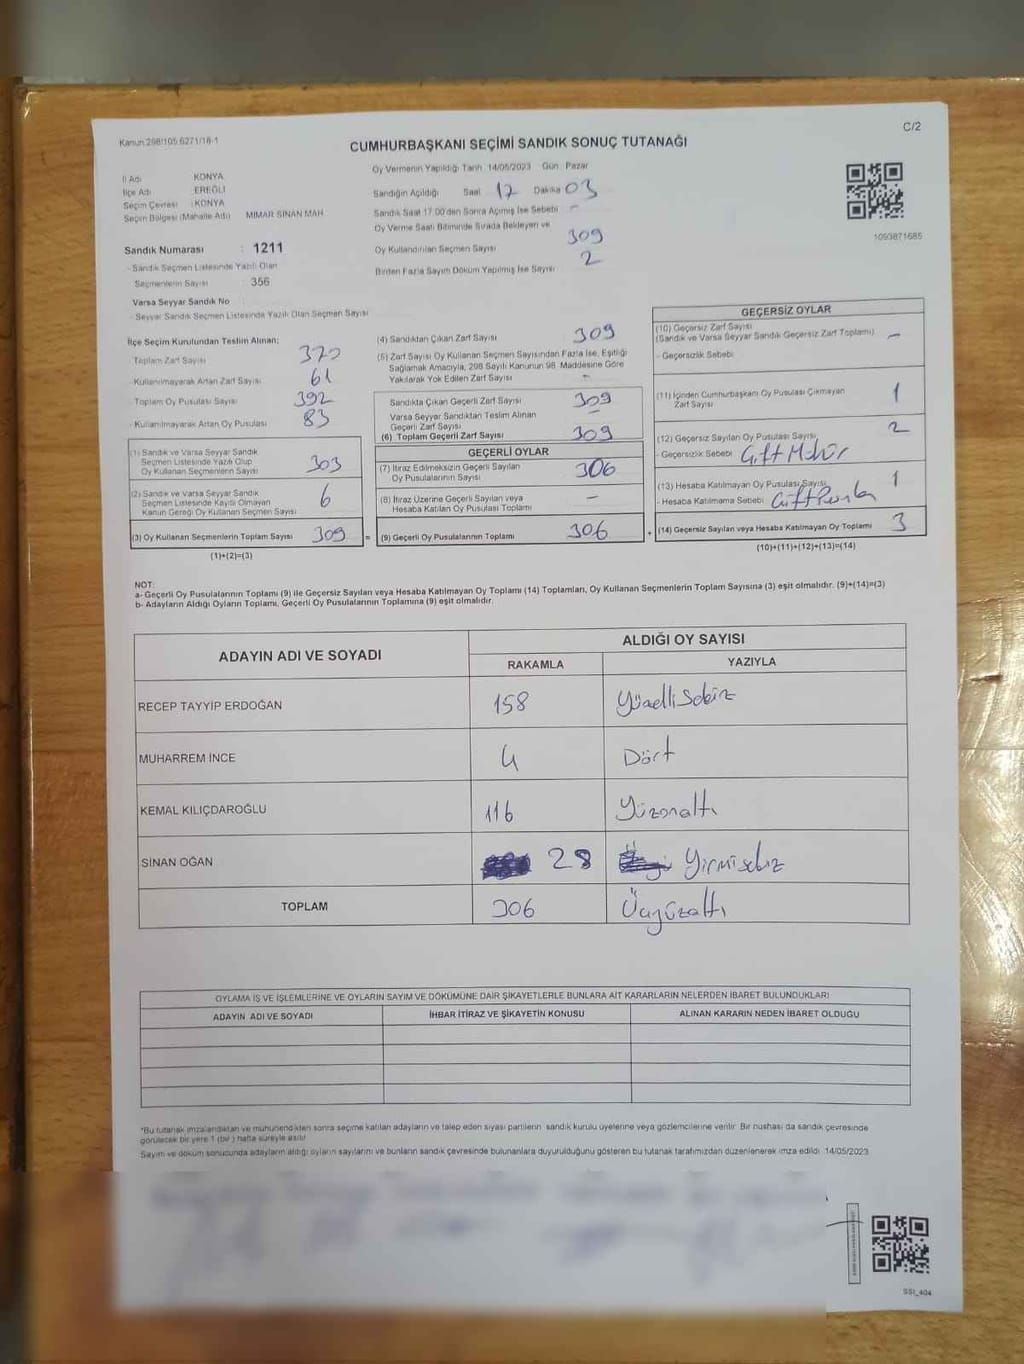 Kanun:298/105 6271/18-1
C/2
CUMHURBAŞKANI SEÇİMİ SANDIK SONUÇ TUTANAĞI
İl Adı KONYA
İlçe Adı EREĞLİ
Seçim Çevresi : KONYA
Seçim Bölgesi (Mahalle Adı) MİMAR SİNAN MAH.
Sandık Numarası : 1211
- Sandık Seçmen Listesinde Yazılı Olan
Seçmenlerin Sayısı : 356
Varsa Seyyar Sandık No
- Seyyar Sandık Seçmen Listesinde Yazılı Olan Seçmen Sayısı
Oy Vermenin Yapıldığı Tarih 14/05/2023 Gün Pazar
Sandığın Açıldığı Saat 17 Dakika 03
Sandık Saat 17.00'den Sonra Açılmış İse Sebebi -
Oy Verme Saati Bitiminde Sırada Bekleyen ve
Oy Kullandırılan Seçmen Sayısı 309
Birden Fazla Sayım Döküm Yapılmış İse Sayısı 2
1093871685
İlçe Seçim Kurulundan Teslim Alınan;
Toplam Zarf Sayısı 370
- Kullanılmayarak Artan Zarf Sayısı 61
- Toplam Oy Pusulası Sayısı 392
- Kullanılmayarak Artan Oy Pusulası 83
(1) Sandık ve Varsa Seyyar Sandık
Seçmen Listesinde Yazılı Olup
Oy Kullanan Seçmenlerin Sayısı 303
(2) Sandık ve Varsa Seyyar Sandık
Seçmen Listesinde Kayıtlı Olmayan
Kanun Gereği Oy Kullanan Seçmen Sayısı 6
(3) Oy Kullanan Seçmenlerin Toplam Sayısı 309 =
(1)+(2)=(3)
(4) Sandıktan Çıkan Zarf Sayısı 309
(5) Zarf Sayısı Oy Kullanan Seçmen Sayısından Fazla İse, Eşitliği
Sağlamak Amacıyla, 298 Sayılı Kanunun 98. Maddesine Göre
Yakılarak Yok Edilen Zarf Sayısı -
Sandıkta Çıkan Geçerli Zarf Sayısı 309
Varsa Seyyar Sandıktan Teslim Alınan
Geçerli Zarf Sayısı -
(6) Toplam Geçerli Zarf Sayısı 309
GEÇERLİ OYLAR
(7) İtiraz Edilmeksizin Geçerli Sayılan
Oy Pusulalarının Sayısı 306
(8) İtiraz Üzerine Geçerli Sayılan veya
Hesaba Katılan Oy Pusulası Toplamı -
(9) Geçerli Oy Pusulalarının Toplamı 306 +
GEÇERSİZ OYLAR
(10) Geçersiz Zarf Sayısı
(Sandık ve Varsa Seyyar Sandık Geçersiz Zarf Toplamı) -
- Geçersizlik Sebebi
(11) İçinden Cumhurbaşkanı Oy Pusulası Çıkmayan
Zarf Sayısı 1
(12) Geçersiz Sayılan Oy Pusulası Sayısı 2
- Geçersizlik Sebebi Çift Mühür
(13) Hesaba Katılmayan Oy Pusulası Sayısı 1
- Hesaba Katılmama Sebebi Çift Pusula
(14) Geçersiz Sayılan veya Hesaba Katılmayan Oy Toplamı 3
(10)+(11)+(12)+(13)=(14)
NOT:
a- Geçerli Oy Pusulalarının Toplamı (9) ile Geçersiz Sayılan veya Hesaba Katılmayan Oy Toplamı (14) Toplamları, Oy Kullanan Seçmenlerin Toplam Sayısına (3) eşit olmalıdır. (9)+(14)=(3)
b- Adayların Aldığı Oyların Toplamı, Geçerli Oy Pusulalarının Toplamına (9) eşit olmalıdır.
ADAYIN ADI VE SOYADI ALDIĞI OY SAYISI
RAKAMLA YAZIYLA
RECEP TAYYİP ERDOĞAN 158 Yüzellisekiz
MUHARREM İNCE 4 Dört
KEMAL KILIÇDAROĞLU 116 Yüzonaltı
SİNAN OĞAN 28 Yirmisekiz
TOPLAM 306 Üçyüzaltı
OYLAMA İŞ VE İŞLEMLERİNE VE OYLARIN SAYIM VE DÖKÜMÜNE DAİR ŞİKAYETLERLE BUNLARA AİT KARARLARIN NELERDEN İBARET BULUNDUKLARI
ADAYIN ADI VE SOYADI İHBAR İTİRAZ VE ŞİKAYETİN KONUSU ALINAN KARARIN NEDEN İBARET OLDUĞU
*Bu tutanak imzalandıktan ve mühürlendikten sonra seçime katılan adayların ve talep eden siyasi partilerin sandık kurulu üyelerine veya gözlemcilerine verilir. Bir nüshası da sandık çevresinde
görülecek bir yere 1 (bir) hafta süreyle asılır.
Sayım ve döküm sonucunda adayların aldığı oyların sayılarını ve bunların sandık çevresinde bulunanlara duyurulduğunu gösteren bu tutanak tarafımızdan düzenlenerek imza edildi. 14/05/2023
SSI_404